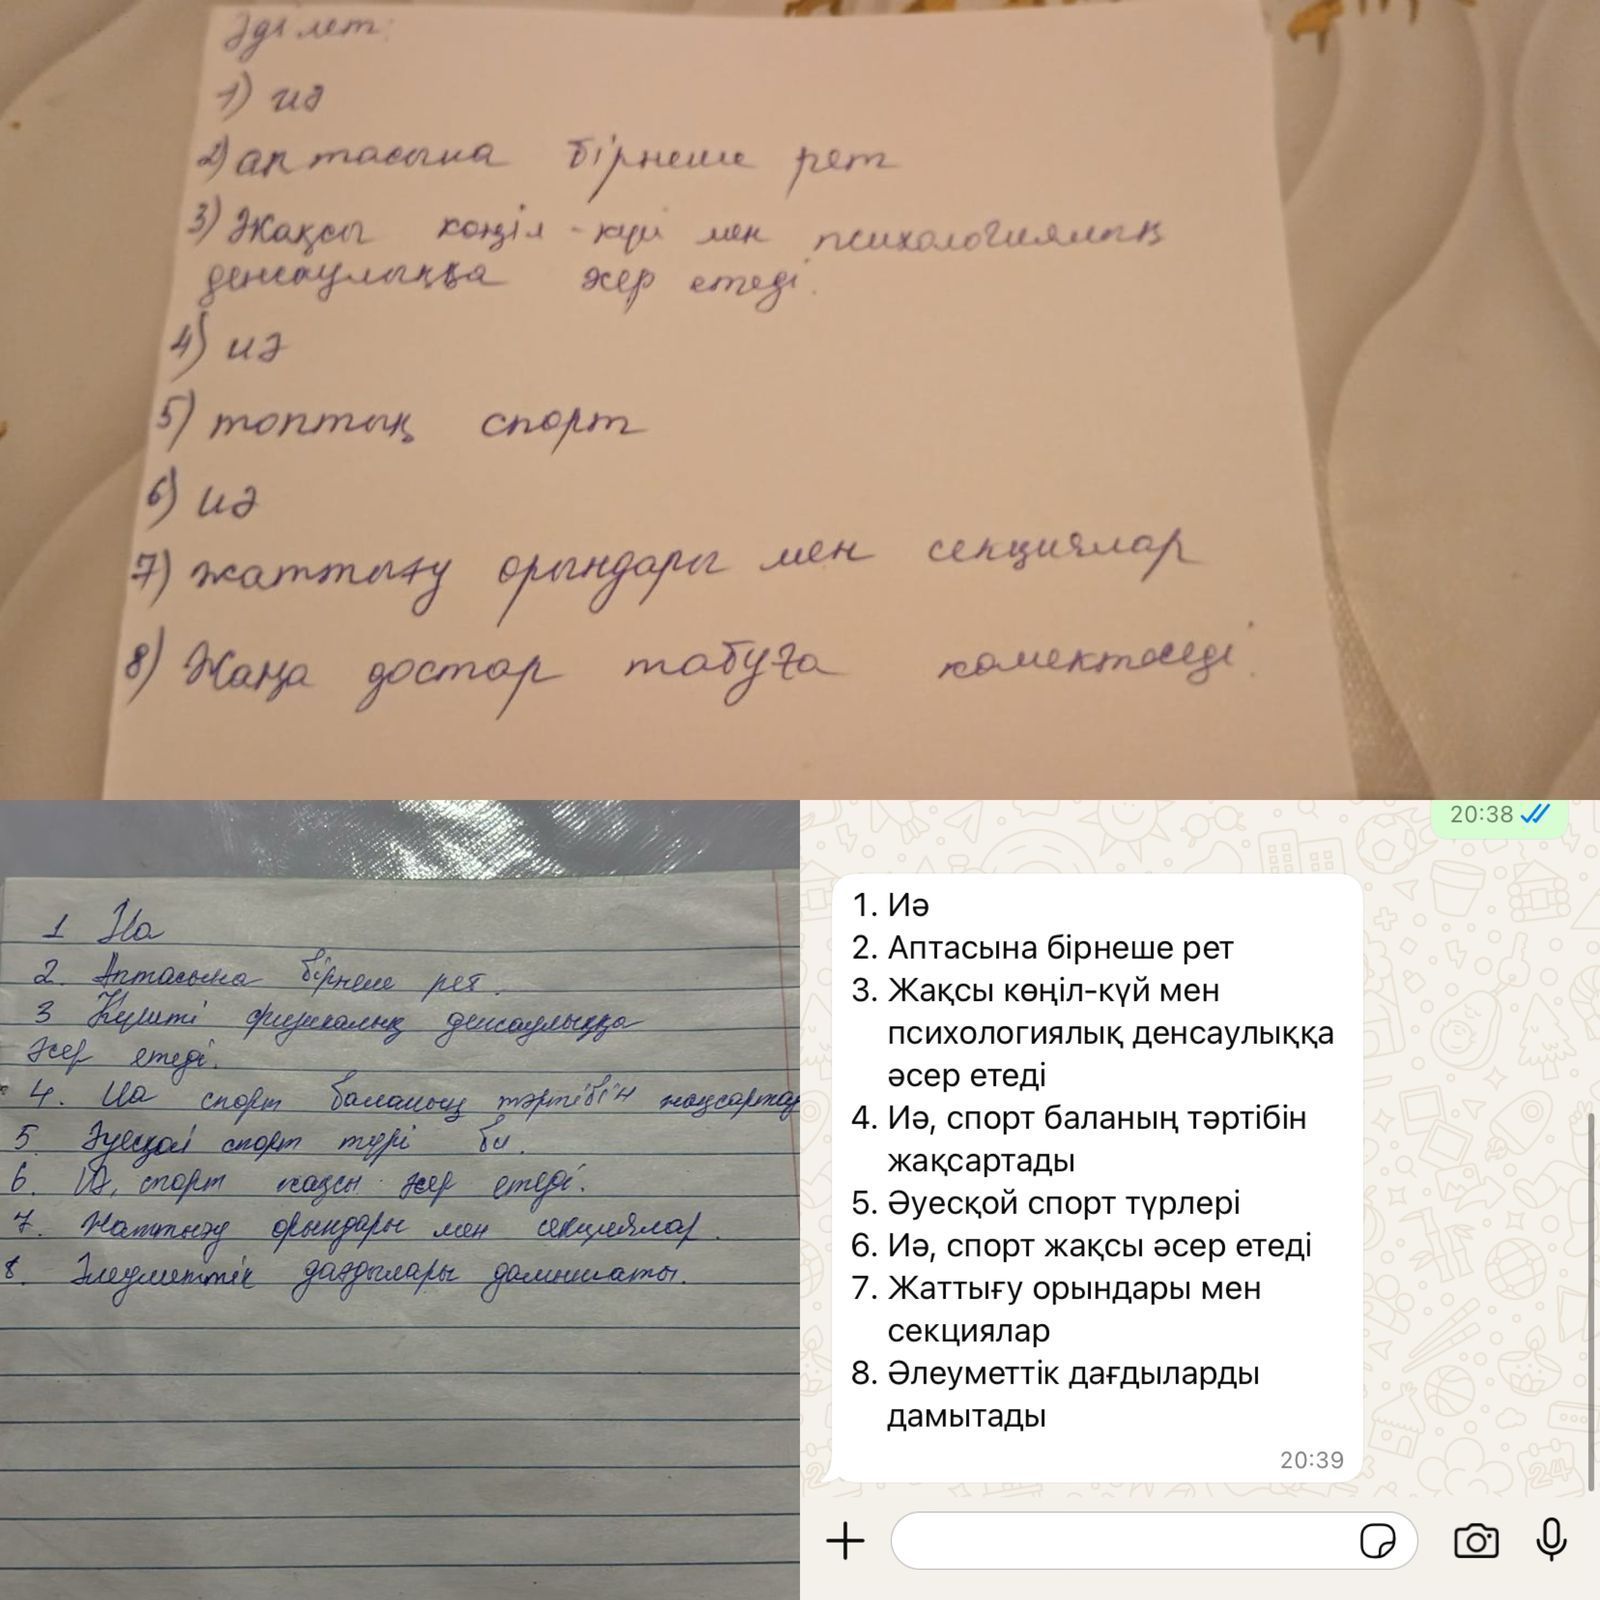 Әділет:
1) иә
2) аптасына бірнеше рет
3) Жақсы көңіл-күй мен психологиялық
денсаулыққа әсер етеді.
4) иә
5) топтық спорт
6) иә
7) жаттығу орындары мен секциялар
8) Жаңа достар табуға көмектеседі.
1 Иа
2. Аптасына бірнеше рет.
3 Күшті физикалық денсаулыққа
әсер етеді.
4. Иа спорт баланың тәртібін жақсартад
5 Әуесқой спорт түрі би.
6. Иә, спорт жақсы әсер етеді.
7. Жаттығу орындары мен секциялар.
8. Әлеуметтік дағдылары
20:38
1. Иә
2. Аптасына бірнеше рет
3. Жақсы көңіл-күй мен
психологиялық денсаулыққа
әсер етеді
4. Иә, спорт баланың тәртібін
жақсартады
5. Әуесқой спорт түрлері
6. Иә, спорт жақсы әсер етеді
7. Жаттығу орындары мен
секциялар
8. Әлеуметтік дағдыларды
дамытады
20:39